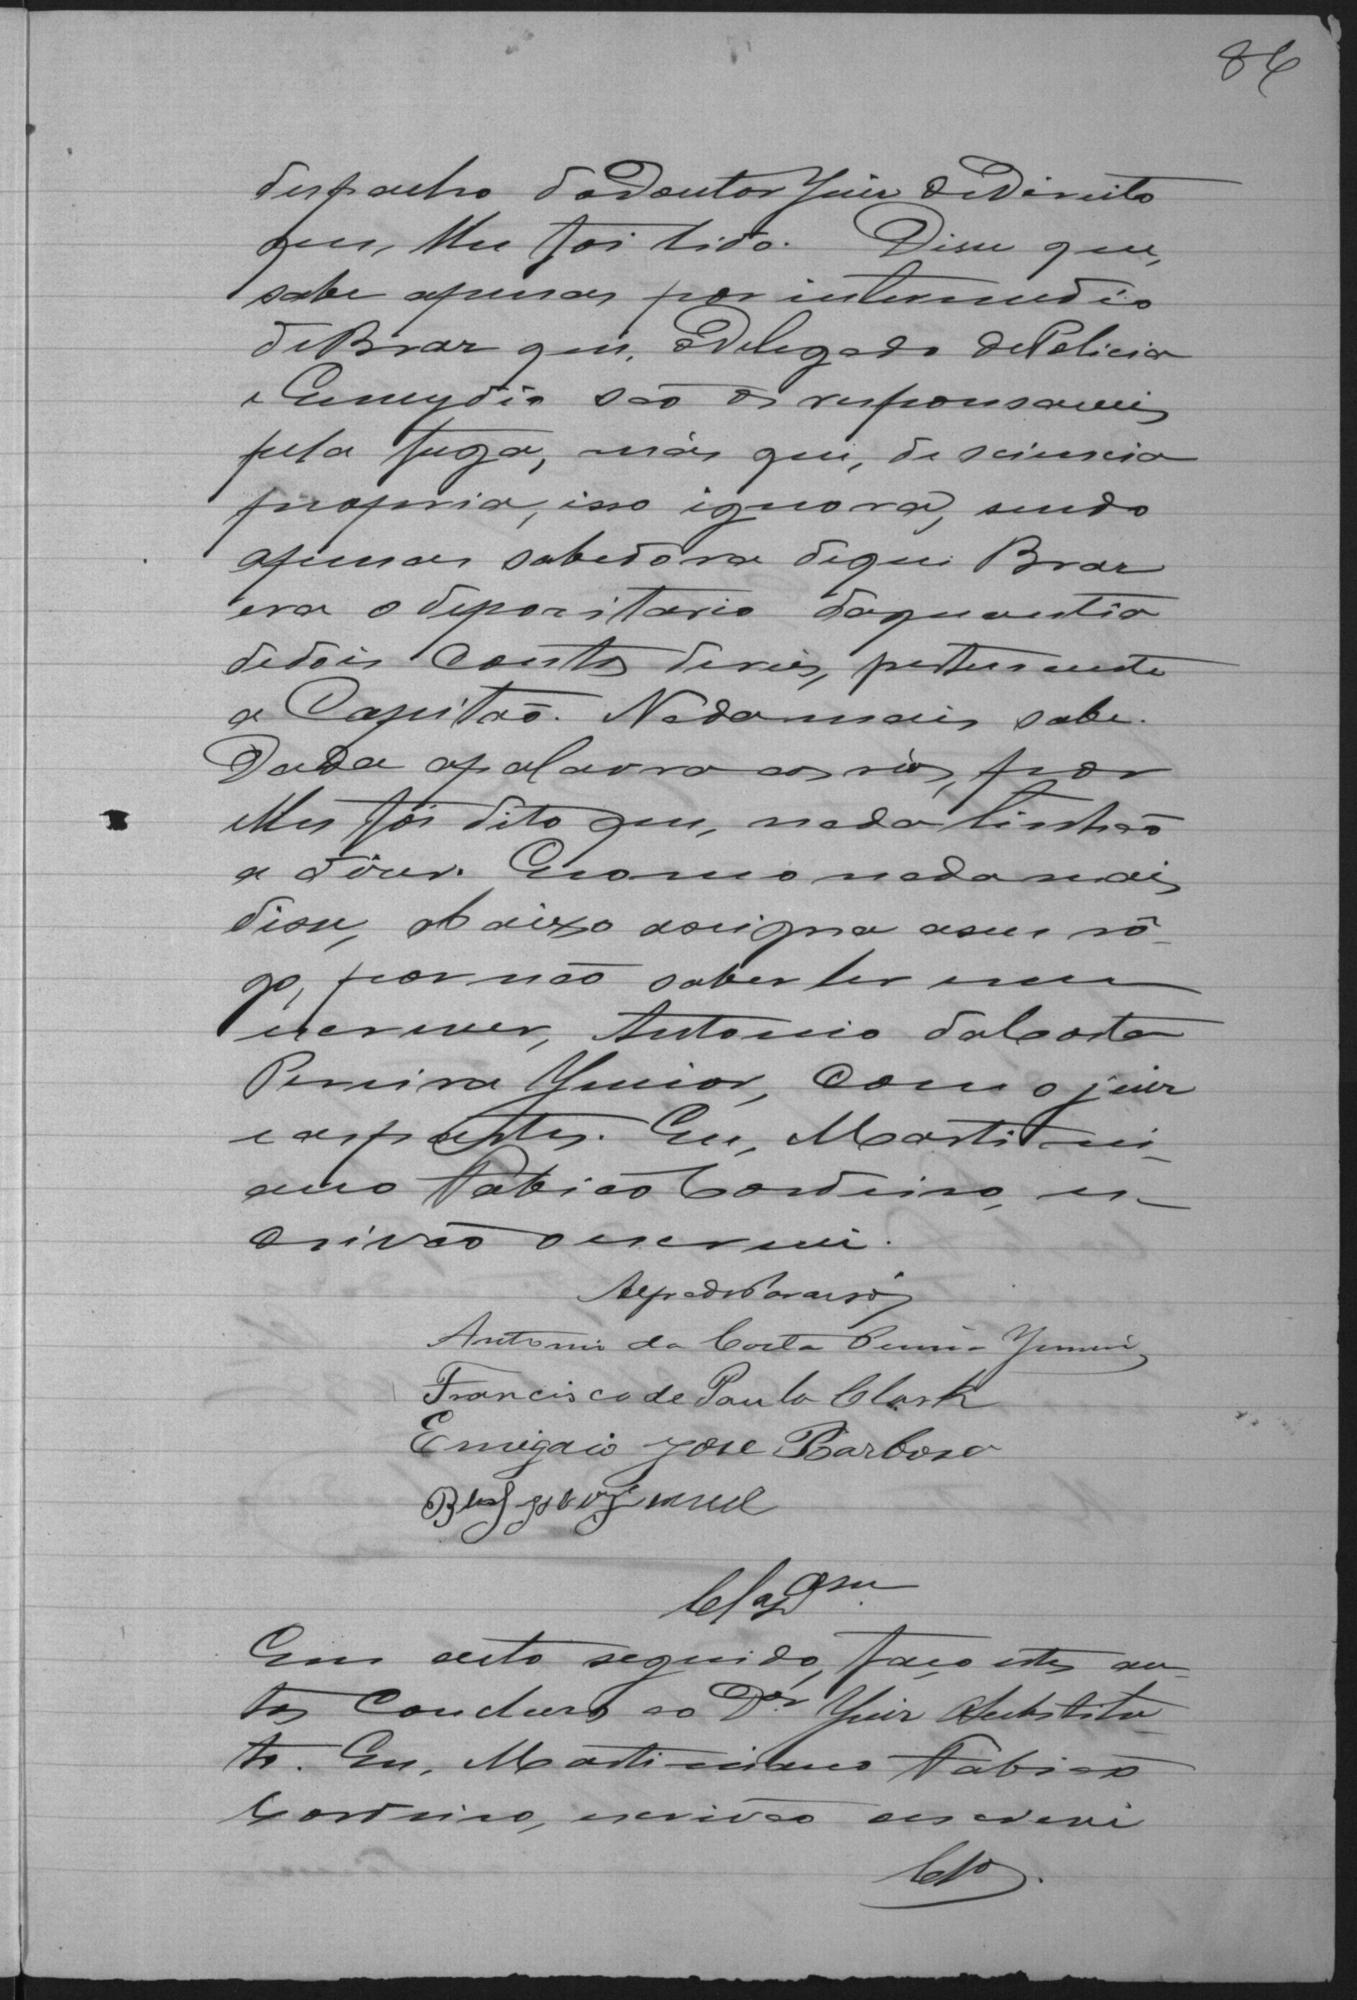 86
despacho do Doutor Juiz de Direito
que, lhe foi lido. Disse que,
sabe apenas por intermedio
de Braz que, o Delegado de Policia
e Emygdio são os responsaveis
pela fuga, más que, de sciencia
propria, isso ignora, sendo
apenas sabedora de que Braz
era o depozitario da quantia
de dois contos de reis, pertencente
a Capitão. Nada mais sabe.
Dada a palavra aos réos, por
elles foi dito que, nada tinhão
a dizer. E como nada mais
disse, abaixo assigna a seu rô-
go, por não saber ler nem
escrever, Antonio da Costa
Pereira Junior, com o juiz
e as partes. Eu, Martini-
ano Fabião Cordeiro, es-
crivão o escrevi.
Antonio da Costa Pereira Junior
Francisco de Paula Clark
Emigdio José Barbosa
Clsam
Em acto seguido, faço estes au-
tos concluzos ao Dr. Juiz Substitu-
to. Eu, Martiniano Fabião
Cordeiro, escrivão o escrevi
Clo.